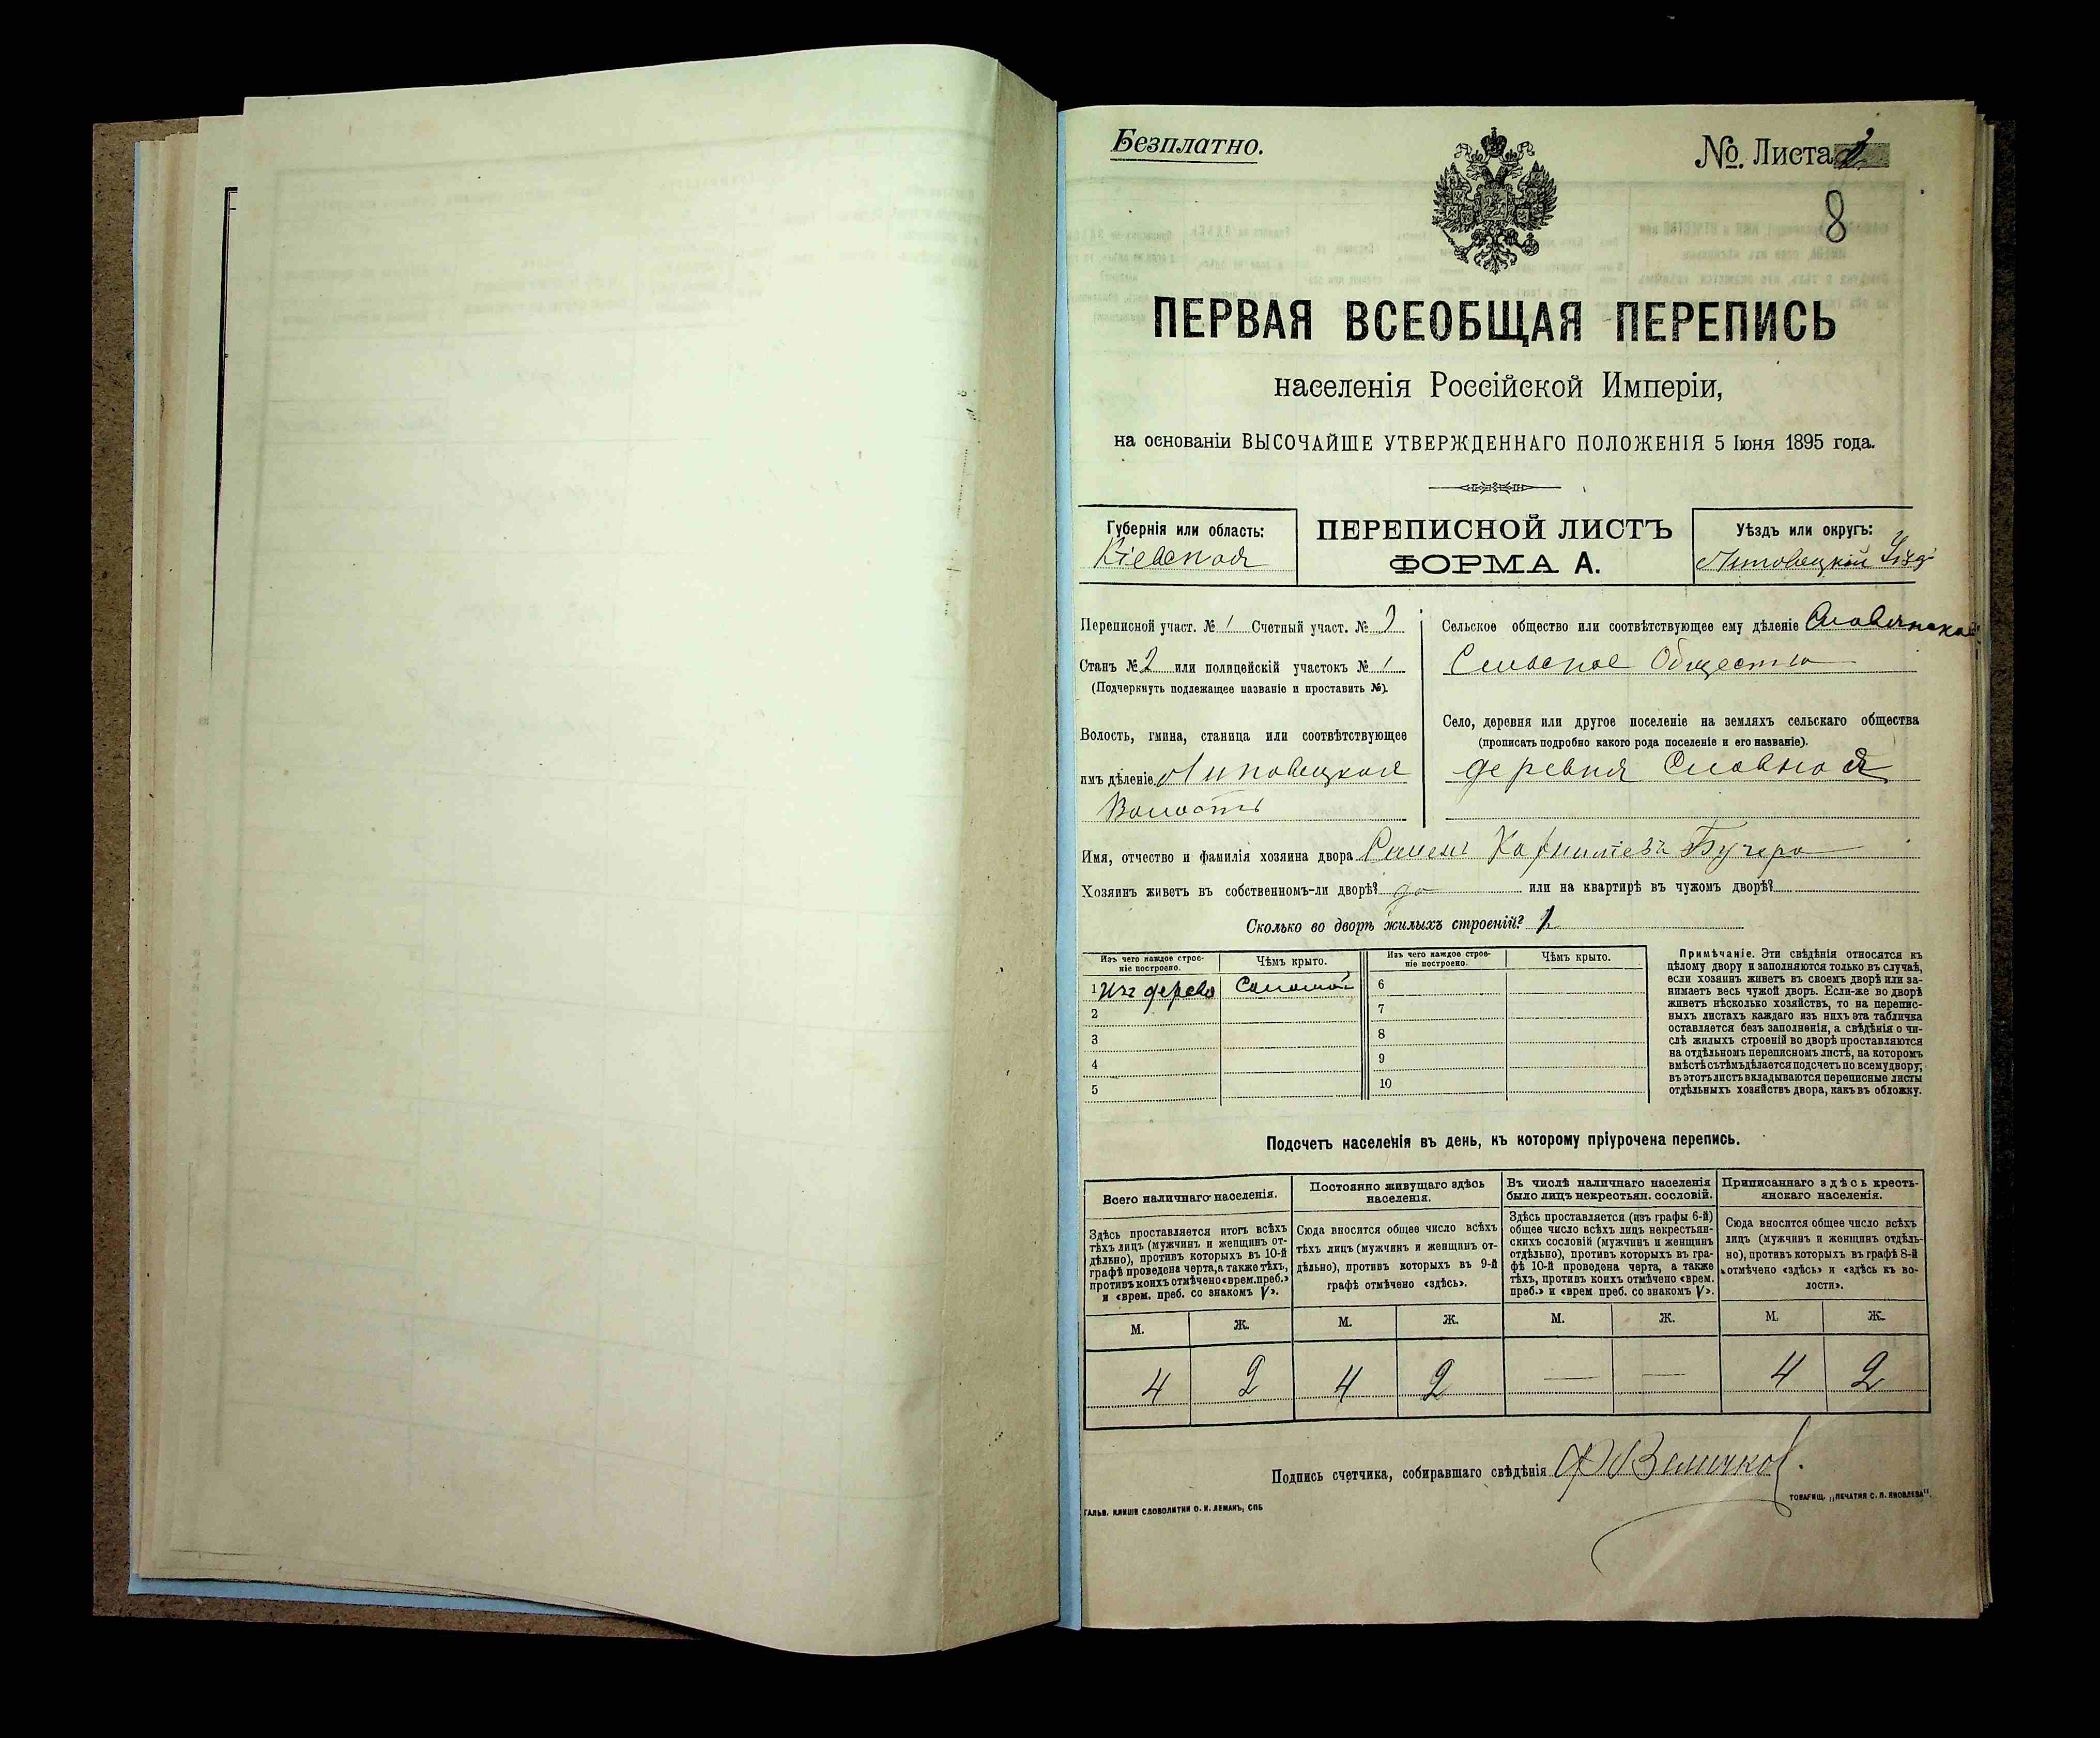 Безплатно.
№. Листа 2
8
ПЕРВАЯ ВСЕОБЩАЯ ПЕРЕПИСЬ
населенія Россійской Имперіи,
на основаніи ВЫСОЧАЙШЕ УТВЕРЖДЕННАГО ПОЛОЖЕНІЯ 5 Іюня 1895 года.
Губернія или область:
Кіевская
ПЕРЕПИСНОЙ ЛИСТЪ
ФОРМА А.
Уѣздъ или округъ:
Липовецкій Уѣзд
Переписной участ. № 1 Счетный участ. №
Станъ № 2 или полицейскій участокъ № 1
(Подчеркнуть подлежащее названіе и проставить №).
Волость, гмина, станица или соотвѣтствующее
имъ дѣленіе Липовецкая
Волость
Сельское общество или соотвѣтствующее ему дѣленіе
Сельское Общество
Село, деревня или другое поселеніе на земляхъ сельскаго общества
(прописать подробно какого рода поселеніе и его названіе).
деревня Славная
Имя, отчество и фамилія хозяина двора Бучера
Хозяинъ живетъ въ собственномъ-ли дворѣ? да или на квартирѣ въ чужомъ дворѣ?
Сколько во дворѣ жилыхъ строеній? 1
Изъ чего каждое строе-
ніе построено.
Чѣмъ крыто.
1 Изъ дерева Соломой
2
3
4
5
Изъ чего каждое строе-
ніе построено.
Чѣмъ крыто.
6
7
8
9
10
Примѣчаніе. Эти свѣдѣнія относятся къ
цѣлому двору и заполняются только въ случаѣ,
если хозяинъ живетъ въ своемъ дворѣ или за-
нимаетъ весь чужой дворъ. Если-же во дворѣ
живетъ нѣсколько хозяйствъ, то на перепис-
ныхъ листахъ каждаго изъ нихъ эта табличка
оставляется безъ заполненія, а свѣдѣнія о чи-
слѣ жилыхъ строеній во дворѣ проставляются
на отдѣльномъ переписномъ листѣ, на которомъ
вмѣстѣ съ тѣмъ дѣлается подсчетъ по всему двору;
въ этотъ листъ вкладываются переписные листы
отдѣльныхъ хозяйствъ двора, какъ въ обложку.
Подсчетъ населенія въ день, къ которому пріурочена перепись.
Всего наличнаго населенія.
Здѣсь проставляется итогъ всѣхъ
тѣхъ лицъ (мужчинъ и женщинъ от-
дѣльно), противъ которыхъ въ 10-й
графѣ проведена черта, а также тѣхъ,
противъ коихъ отмѣчено «врем. преб.»
и «врем. преб. со знакомъ V».
Постоянно живущаго здѣсь
населенія.
Сюда вносится общее число всѣхъ
тѣхъ лицъ (мужчинъ и женщинъ от-
дѣльно), противъ которыхъ въ 9-й
графѣ отмѣчено «здѣсь».
Въ числѣ наличнаго населенія
было лицъ некрестьян. сословій.
Здѣсь проставляется (изъ графы 6-й)
общее число всѣхъ лицъ некрестьян-
скихъ сословій (мужчинъ и женщинъ
отдѣльно), противъ которыхъ въ гра-
фѣ 10-й проведена черта, а также
тѣхъ, противъ коихъ отмѣчено «врем.
преб.» и «врем. преб. со знакомъ V».
Приписаннаго здѣсь кресть-
янскаго населенія.
Сюда вносится общее число всѣхъ
лицъ (мужчинъ и женщинъ отдѣль-
но), противъ которыхъ въ графѣ 8-й
отмѣчено «здѣсь» и «здѣсь къ во-
лости».
М. Ж. М. Ж. М. Ж. М. Ж.
4 2 4 2 — — 4 2
Подпись счетчика, собиравшаго свѣдѣнія
ГАЛЬВ. КЛИШЕ СЛОВОЛИТНИ О. И. ЛЕМАНЪ, СПБ
ТОВАРИЩ. „ПЕЧАТНЯ С. П. ЯКОВЛЕВА".